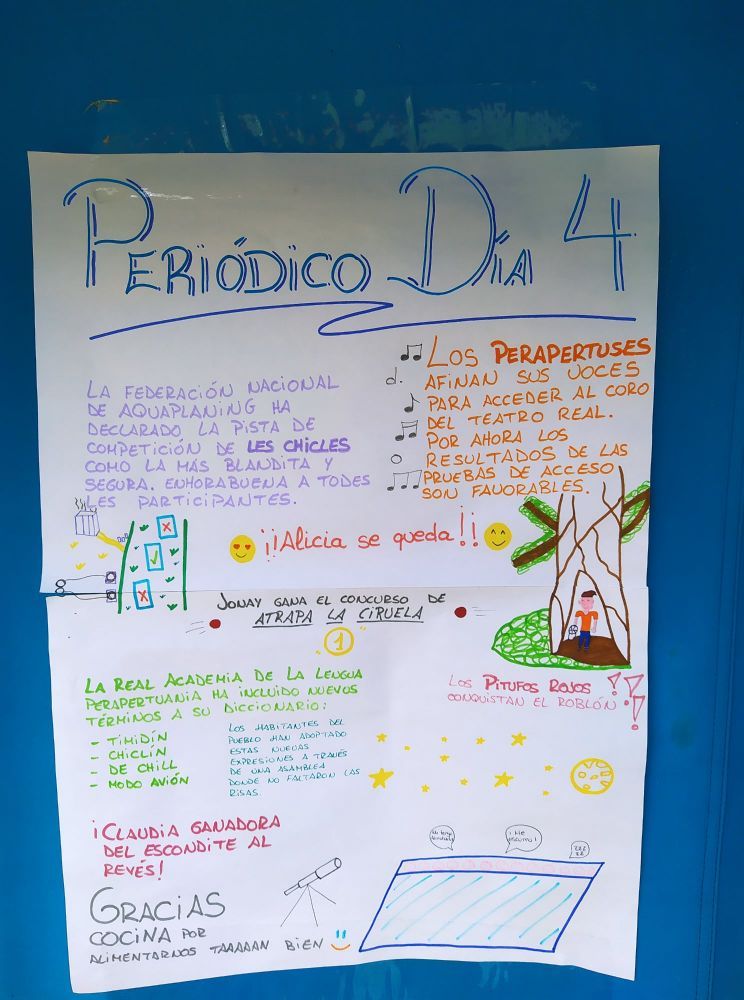 PERIÓDICO DÍA 4
LA FEDERACIÓN NACIONAL
DE AQUAPLANING HA
DECLARADO LA PISTA DE
COMPETICIÓN DE LES CHICLES
COMO LA MÁS BLANDITA Y
SEGURA. ENHORABUENA A TODES
LES PARTICIPANTES.
LOS PERAPERTUSES
AFINAN SUS VOCES
PARA ACCEDER AL CORO
DEL TEATRO REAL.
POR AHORA LOS
RESULTADOS DE LAS
PRUEBAS DE ACCESO
SON FAVORABLES.
¡¡Alicia se queda!!
JONAY GANA EL CONCURSO DE
ATRAPA LA CIRUELA
1
LA REAL ACADEMIA DE LA LENGUA
PERAPERTUANIA HA INCLUIDO NUEVOS
TÉRMINOS A SU DICCIONARIO:
- TIMIDÍN
- CHICLÍN
- DE CHILL
- MODO AVIÓN
LOS HABITANTES DEL
PUEBLO HAN ADOPTADO
ESTAS NUEVAS
EXPRESIONES A TRAVÉS
DE UNA ASAMBLEA
DONDE NO FALTARON LAS
RISAS.
LOS PITUFOS ROJOS
CONQUISTAN EL ROBLÓN!!
¡CLAUDIA GANADORA
DEL ESCONDITE AL
REVÉS!
GRACIAS
COCINA POR
ALIMENTARNOS TAAAAAN BIEN
ZZZ
ZZ